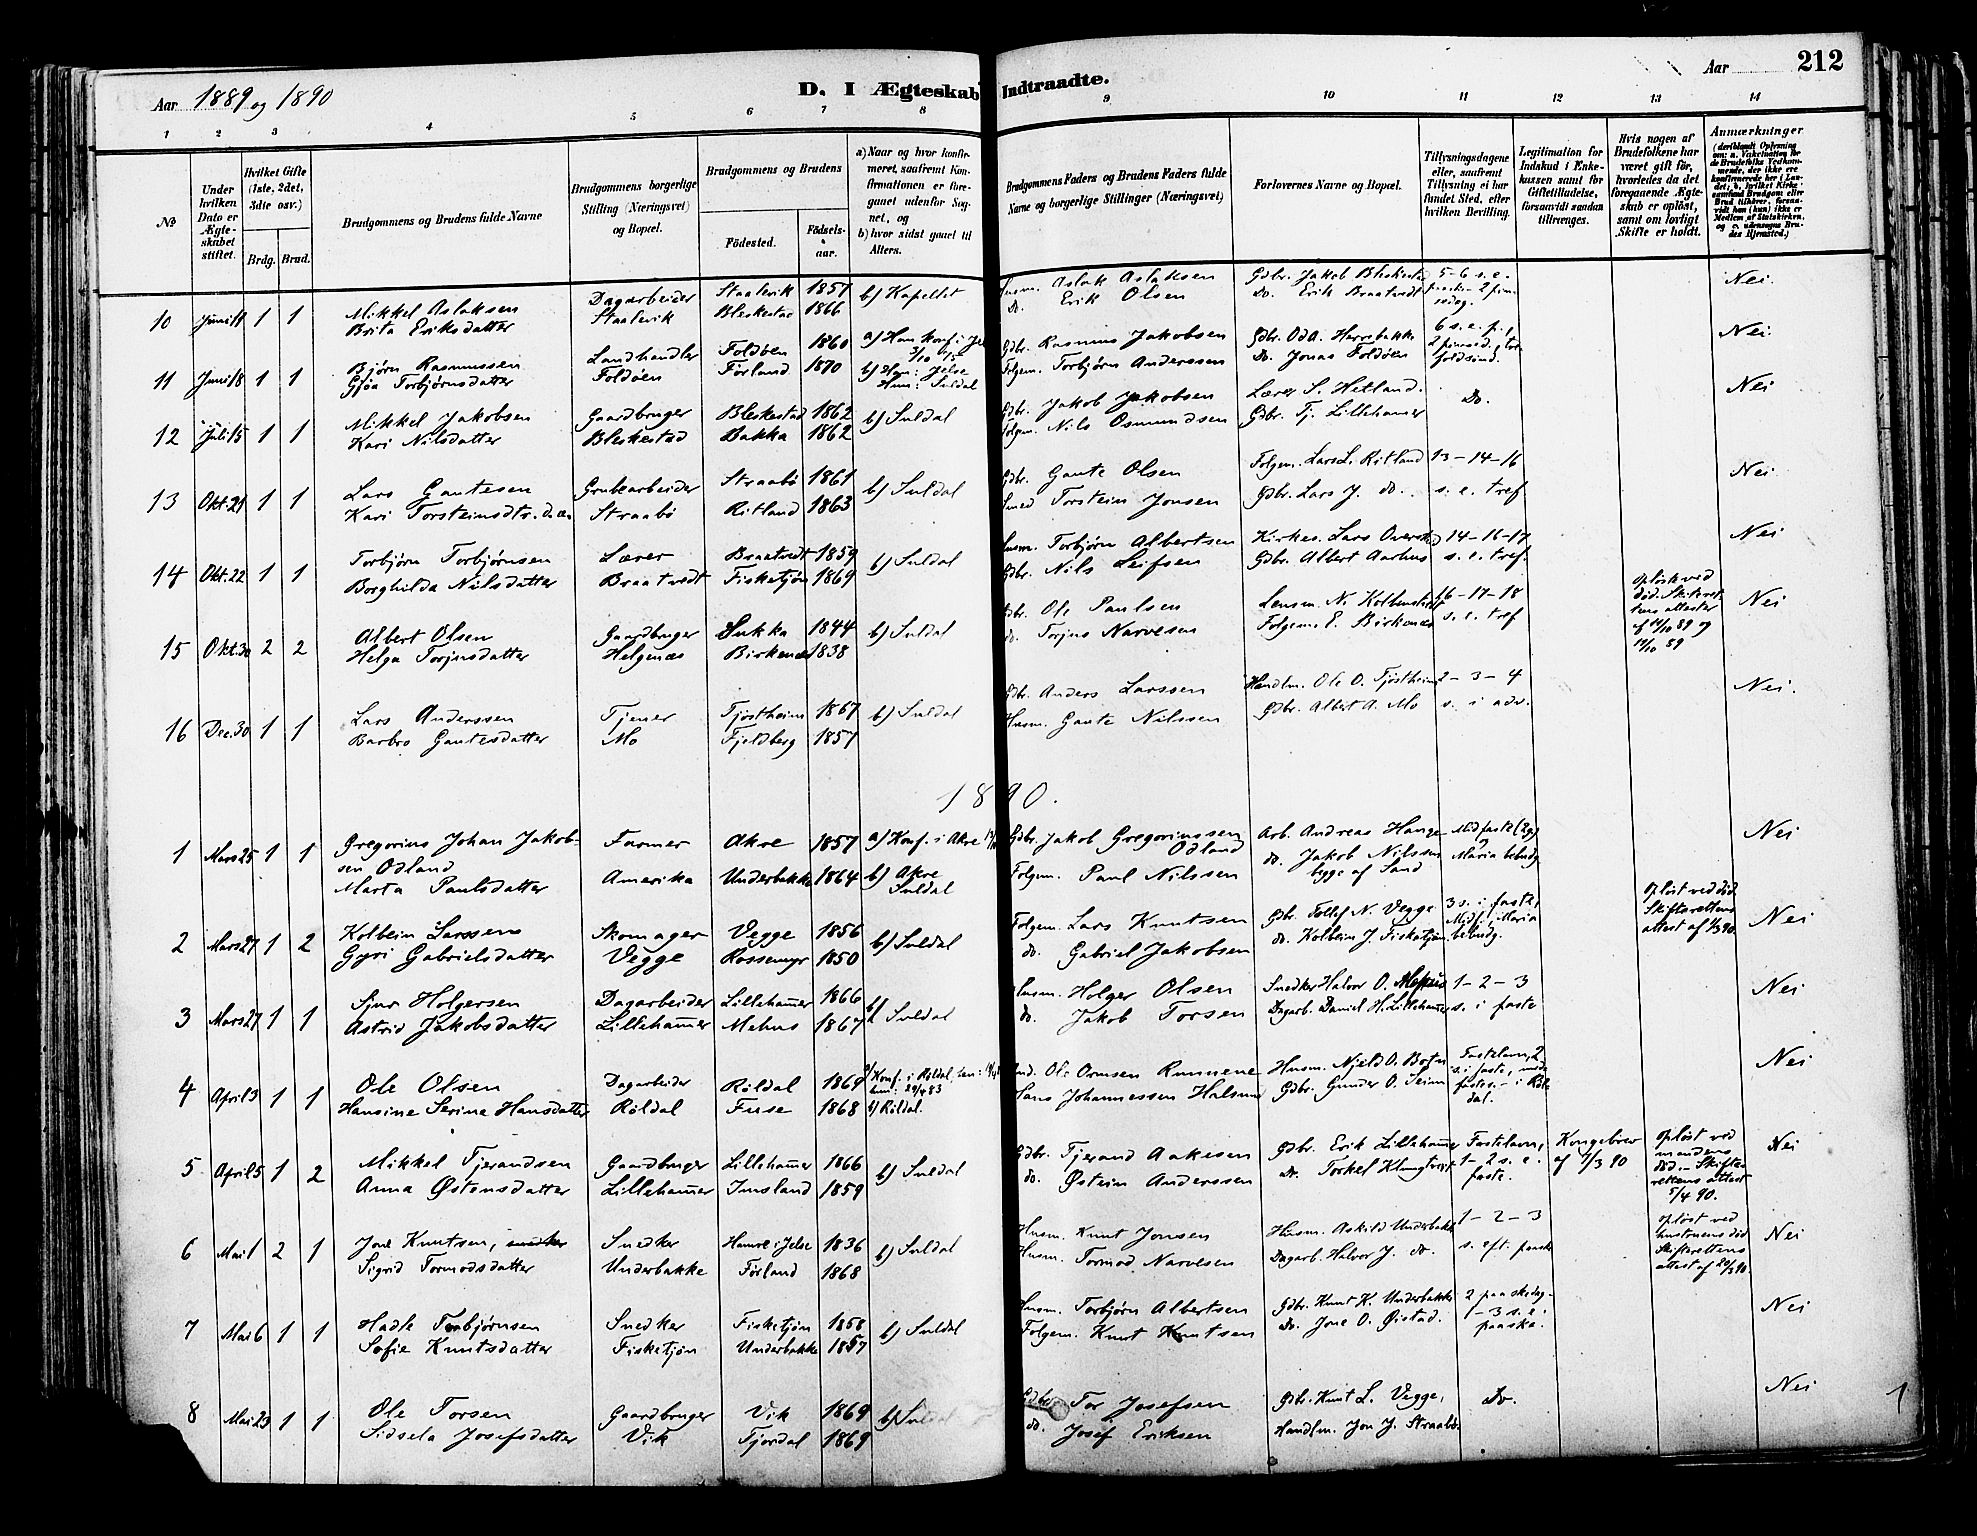 Aar 1889 og 1890
D. I Ægteskab Indtraadte.
Aar 212
1 2 3 4 5 6 7 8 9 10 11 12 13 14
№
Under hvilken Dato er Ægteskabet stiftet.
Hvilket Gifte (1ste, 2det, 3die osv.)
Brdg. Brud.
Brudgommens og Brudens fulde Navne
Brudgommens borgerlige Stilling (Næringsvei) og Bopæl.
Brudgommens og Brudens
Födested.
Födsels-aar.
a) Naar og hvor konfirmeret, saafremt Konfirmationen er foregaaet udenfor Sognet, og
b) hvor sidst gaaet til Alters.
Brudgommens Faders og Brudens Faders fulde Navne og borgerlige Stillinger (Næringsvei)
Forlovernes Navne og Bopæl.
Tillysningsdagene eller, saafremt Tillysning ei har fundet Sted, efter hvilken Bevilling.
Legitimation for Indskud i Enkekassen samt for Giftetilladelse, forsaavidt saadan tiltrænges.
Hvis nogen af Brudefolkene har været gift før, hvorledes da det foregaaende Ægteskab er oplöst, samt om lovligt Skifte er holdt.
Anmærkninger
10 Juni 11 1 1 Mikkel Aslaksen Dagarbeider Staalevik 1857 b) Kapellet Husm. Aslak Aslaksen Gdbr. Jakob Bleskestad 5-6 s. e. Nei.
Brita Eriksdatter Staalevik Bleskestad 1866 Do. Erik Olsen Do. Erik Braatvedt
11 Juni 18 1 1 Bjørn Rasmussen Landhandler Foldøen 1860 a) Ham konf. i Gdbr. Rasmus Jakobsen Gdbr. Od A. Herrebakke 6 s. e. p., Nei.
Gjøa Torbjørnsdatter Foldøen Førland 1870 b) Ham: Jelse Hun: Suldal Folgem. Torbjørn Anderssen Do. Jonas Foldøen
12 Juli 15 1 1 Mikkel Jakobsen Gaardbruger Bleskestad 1862 b) Suldal Gdbr. Jakob Jakobsen Lærer S. Hetland. Do. Nei
Kari Nilsdatter Bleskestad Bakka 1862 Folgem. Nils Osmundsen Gdbr. Tj. Lillehamer
13 Okt. 21 1 1 Lars Gautesen Grubearbeider Straabø 1861 b) Suldal Gdbr. Gaute Olsen Folgem. Lars L. Ritland 13-14-16 Nei
Kari Torsteinsdtr. Straabø Ritland 1863 Smed Torstein Jonsen Gdbr. Lars J. do. s. e. tref
14 Okt. 22 1 1 Torbjørn Torbjørnsen Lærer Braatvedt 1859 b) Suldal Husm. Torbjørn Albertsen Kirkes. Lars 14-16-17 Nei
Borghilda Nilsdatter Braatvedt Fisketjøn 1869 Gdbr. Nils Leifsen Gdbr. Albert Aarhus s. e. tref.
15 Okt. 30 2 2 Albert Olsen Gaardbruger Sukka 1844 b) Suldal Gdbr. Ole Paulsen Lensm. N. Kolbenstvedt 16-17-18 opløst ved død. Nei
Helga Torjusdatter Helgenæs Birkenæs 1838 do. Torjus Narvesen Folgem. E. Birkenæs s. e. tref
16 Dec. 30 1 1 Lars Anderssen Tjener Tjøstheim 1867 b) Suldal Gdbr. Anders Larssen Handlm. Ole O. Tjøstheim 2-3-4 Nei.
Barbro Gautesdatter Mo Fjeldberg 1857 Husm. Gaute Nilssen Gdbr. Albert A. Mo s. i adv.
1890.
1 Mars 25 1 1 Gregorius Johan Jakobsen Odland Farmer Akre 1857 a) Konf. i Akre Gdbr. Jakob Gregoriussen Odland Arb. Andreas Hauge Midfaste Nei
Marta Paulsdatter Amerika Underbakke 1864 b) Akre Suldal Folgem. Paul Nilssen do. Jakob Nilssen begge af Sand Maria bebudg.
2 Mars 27 1 2 Kolbein Larssen Skomager Vegge 1856 b) Suldal Folgem. Lars Knutsen Gdbr. Tollef N. Vegge 3 s. i faste, Midf., Maria bebudg. opløst ved død Skifterettens attest af Nei
Gyri Gabrielsdatter Vegge Rossemyr 1850 do. Gabriel Jakobsen do. Kolbein J. Fisketjøn
3 Mars 27 1 1 Sjur Holgersen Dagarbeider Lillehamer 1866 b) Suldal Husm. Holger Olsen Snedker Halvor O. 1-2-3 Nei
Astrid Jakobsdatter Lillehamer Mehus 1867 do. Jakob Torsen Dagarb. Daniel H. Lillehamer s. i faste
4 April 3 1 1 Ole Olsen Dagarbeider Røldal 1869 a) Konf. i Røldal Ole Ormsen Husm. Njeld O. Botn Fastelavn, Nei
Hansine Serina Hansdatter Røldal Fuse 1868 b) Røldal. Hans Johannessen Gdbr. Gunder O. Seim
5 April 5 1 2 Mikkel Tjerandsen Gaardbruger Lillehamer 1866 b) Suldal Gdbr. Tjerand Aakesen Gdbr. Erik Lillehamer Fastelavn, 1-2 s. e. faste. Kongebrev opløst ved mandens død. - Skifterettens attest 5/4 90. Nei
Anna Østensdatter Lillehamer Imsland 1859 do. Østein Anderssen Do. Torkel
6 Mai 1 2 1 Jone Knutsen, Snedker Hamre i Jelse 1836 b) Suldal Husm. Knut Jonsen Husm. Askild Underbakke 1-2-3 opløst ved hustruens død Skifterettens attest af 20/3 90. Nei
Sigrid Tormodsdatter Underbakke Førland 1868 Husm. Tormod Narvesen Dagarb. Halvor J. do. s. eft. paaske
7 Mai 6 1 1 Hadle Torbjørnsen Snedker Fisketjøn 1858 b) Suldal Husm. Torbjørn Albertsen Gdbr. Knut K. Underbakke 2 paaskedag - Nei
Sofie Knutsdatter Fisketjøn Underbakke 1857 Folgem. Knut Knutsen Do. Jone O. Øistad. 1-3 s. e. paaske.
8 Mai 23 1 1 Ole Torsen Gaardbruger Vik 1869 b) Suldal Gdbr. Tor Josefsen Gdbr. Knut L. Vegge, Do. Nei
Sidsela Josefsdatter Vik Fjordal 1869 do. Josef Eriksen Handlm. Jon J. Straabø.